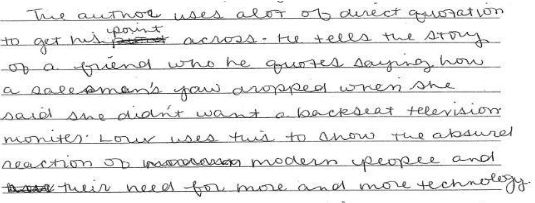 The author uses alot of direct quotation
to get his point across. He tells the story
of a friend who he quotes saying how
a salesman's jaw dropped when she
said she didn't want a backseat television
moniter. Louv uses this to show the absurd
reaction of modern people and
their need for more and more technology.